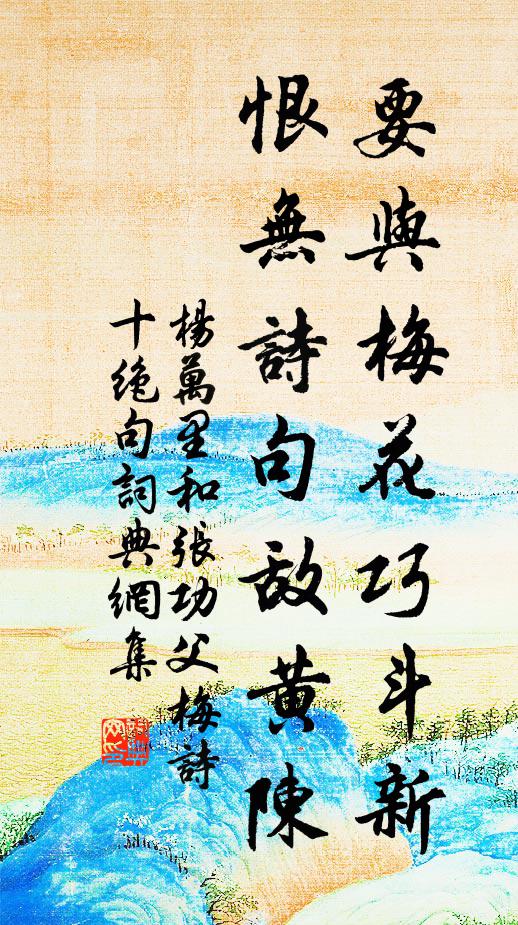 要與梅花巧斗新
恨無詩句敵黃陳
楊萬里和張功父梅詩
十絶句詞典網集